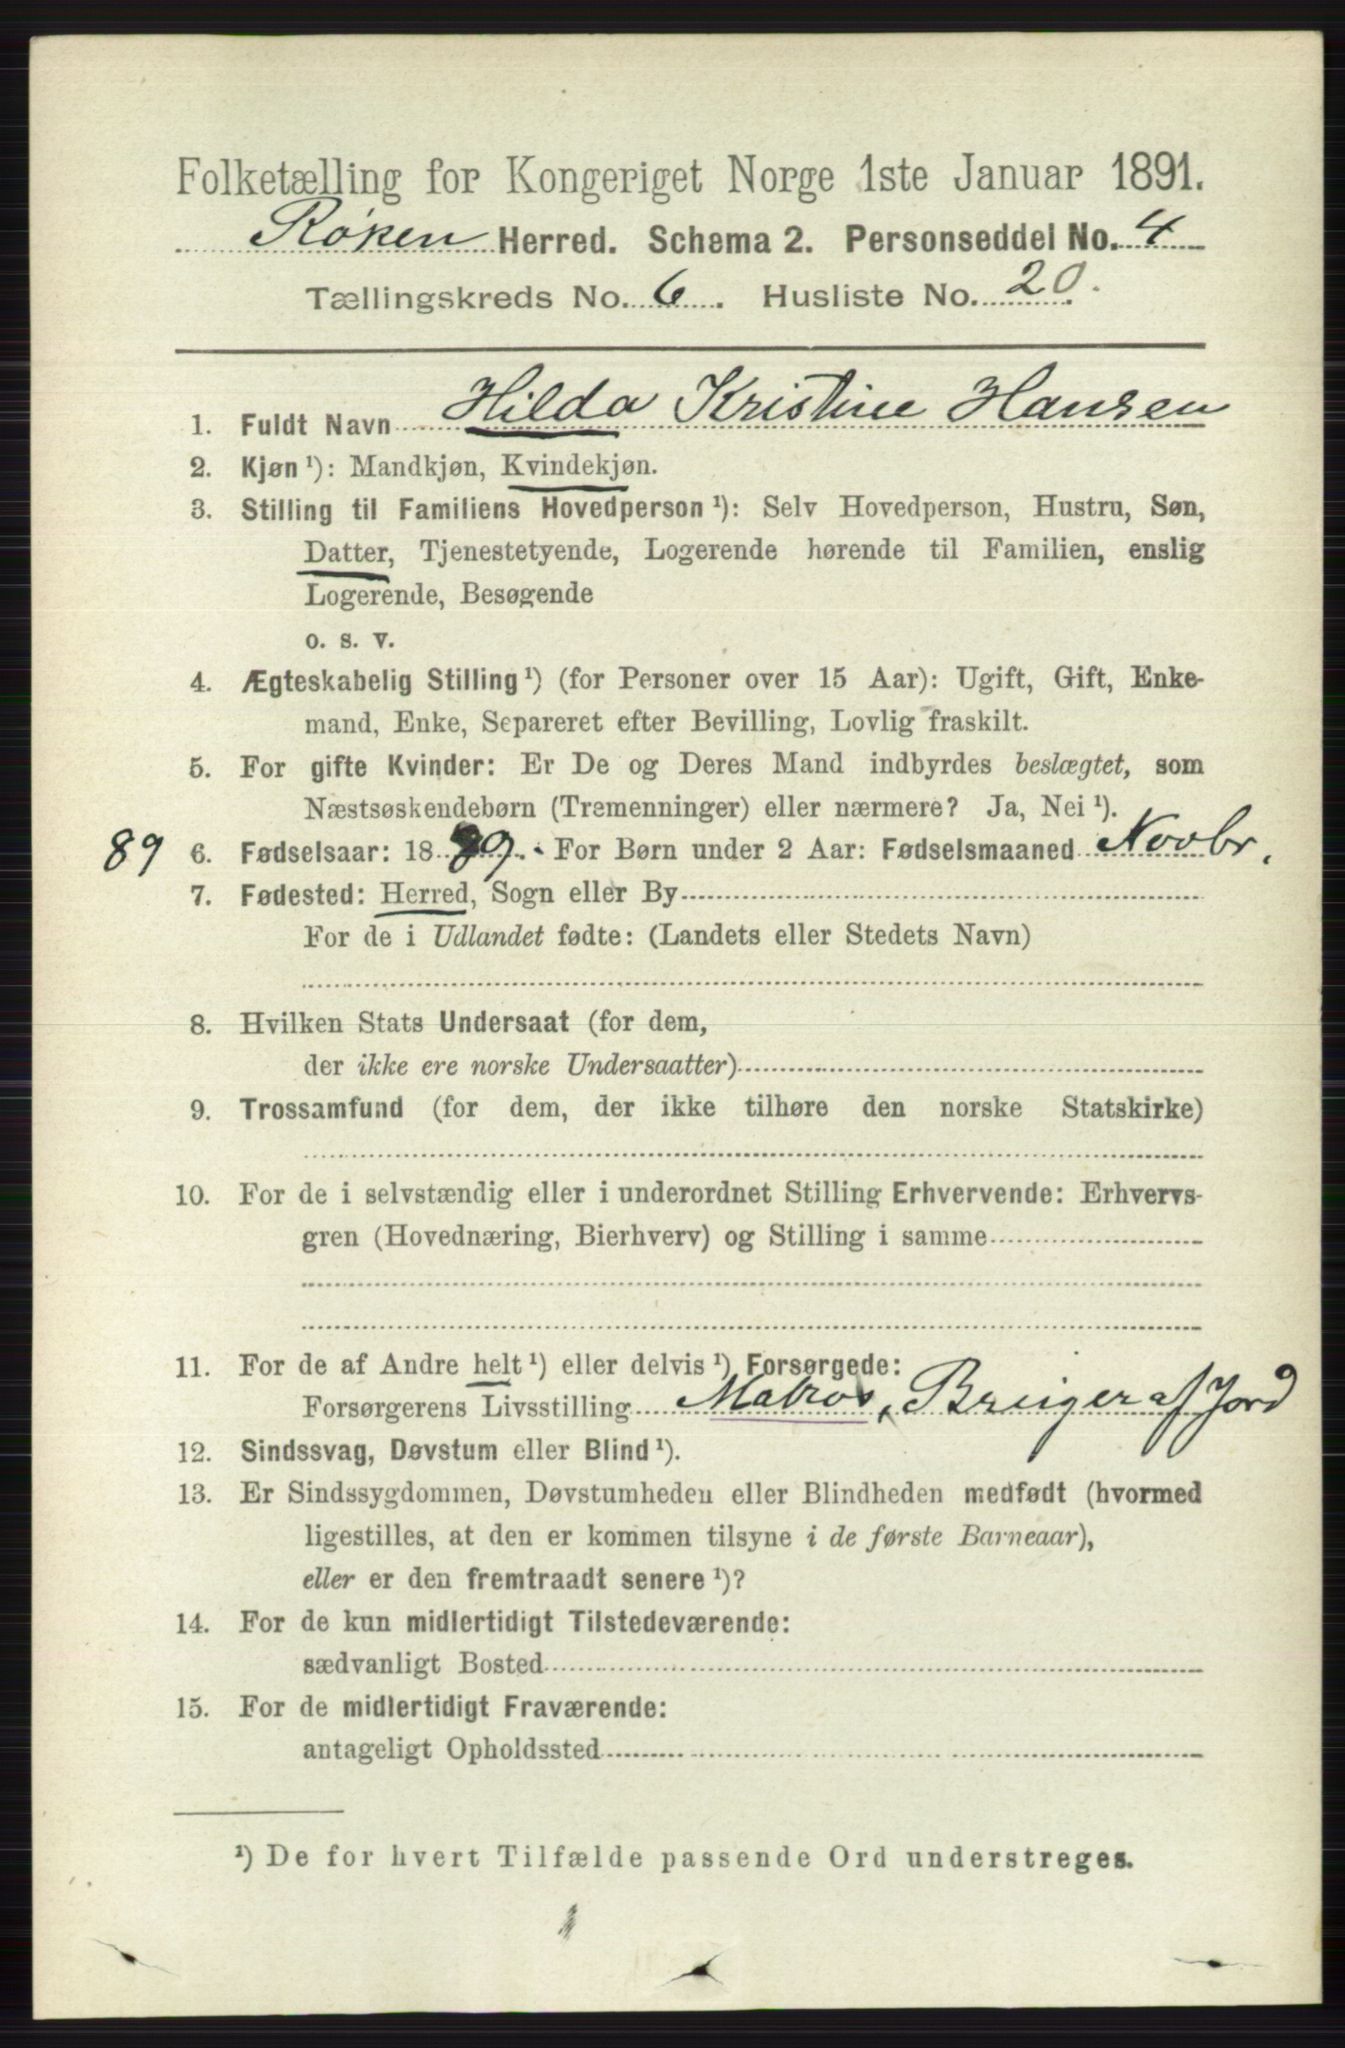 Folketælling for Kongeriget Norge 1ste Januar 1891.
Røken Herred. Schema 2. Personseddel No. 4
Tællingskreds No. 6. Husliste No. 20.
1. Fuldt Navn Hilda Kristine Hansen
2. Kjøn ¹): Mandkjøn, Kvindekjøn.
3. Stilling til Familiens Hovedperson ¹): Selv Hovedperson, Hustru, Søn,
Datter, Tjenestetyende, Logerende hørende til Familien, enslig
Logerende, Besøgende
o. s. v.
4. Ægteskabelig Stilling ¹) (for Personer over 15 Aar): Ugift, Gift, Enke-
mand, Enke, Separeret efter Bevilling, Lovlig fraskilt.
5. For gifte Kvinder: Er De og Deres Mand indbyrdes beslægtet, som
Næstsøskendebørn (Tremenninger) eller nærmere? Ja, Nei ¹).
89 6. Fødselsaar: 1889. For Børn under 2 Aar: Fødselsmaaned Novbr.
7. Fødested: Herred, Sogn eller By
For de i Udlandet fødte: (Landets eller Stedets Navn)
8. Hvilken Stats Undersaat (for dem,
der ikke ere norske Undersaatter)
9. Trossamfund (for dem, der ikke tilhøre den norske Statskirke)
10. For de i selvstændig eller i underordnet Stilling Erhvervende: Erhvervs-
gren (Hovednæring, Bierhverv) og Stilling i samme
11. For de af Andre helt ¹) eller delvis ¹) Forsørgede:
Forsørgerens Livsstilling Matros, Bruger af Jord
12. Sindssvag, Døvstum eller Blind ¹).
13. Er Sindssygdommen, Døvstumheden eller Blindheden medfødt (hvormed
ligestilles, at den er kommen tilsyne i de første Barneaar),
eller er den fremtraadt senere ¹)?
14. For de kun midlertidigt Tilstedeværende:
sædvanligt Bosted
15. For de midlertidigt Fraværende:
antageligt Opholdssted
¹) De for hvert Tilfælde passende Ord understreges.